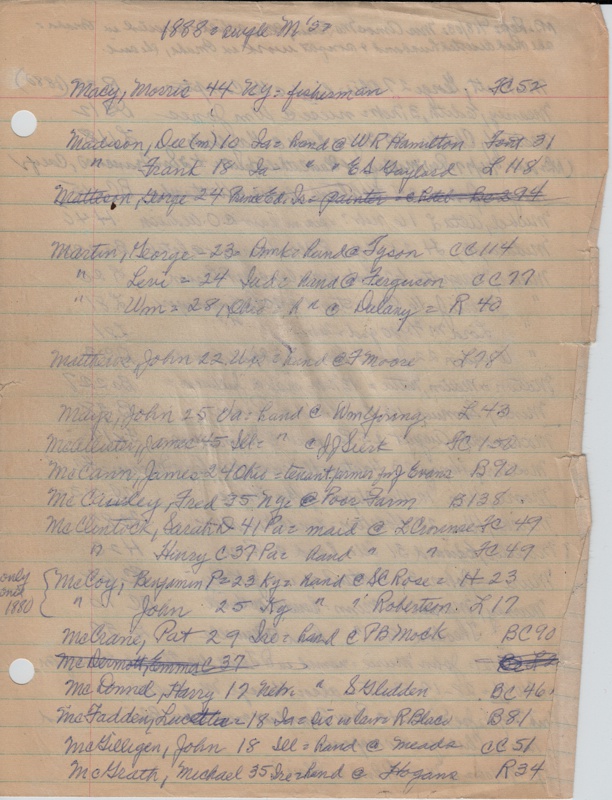 1888 = single M's?
Macy, Morris 44 NY = fisherman FC 52
Madison, Dee (m) 10 Ia = hand @ WR Hamilton Font 31
" Frank 18 Ia - " " ES Gaylord L 118
Matteson, George 24 Prince Ed. Is = painter BC 294
Martin, George - 23 = Denmk = hand @ Tyson CC 114
" Levi = 24 Ind = hand @ Ferguson CC 77
" Wm = 28, Ohio = h " @ Delany = R 40
Matthews, John 22 = hand @ F Moore L 98
Mays, John 25 Va = hand @ Wm Young L 43
McAllister, James 45 Ill = " @ JJ FC 150
McCann, James 24 Ohio = tenant farmer Evans B 90
Fred 35 @ Poor Farm B 138
McClintock, Sarah D 41 Pa = maid @ L Crounse FC 49
" Henry C 37 Pa = hand " " FC 49
only
1880
McCoy, Benjamin P = 23 Ky = hand @ SC Rose = H 23
" John 25 Ky " " Robertson L 17
McCrane, Pat 29 Ire = hand @ PB Mock BC 90
McDermott, Emma C 37
McDonnel, Harry 17 Nebr. " S Glidden BC 46
McFadden, = 18 Ia = sis in law = R Black B 81
McGilligen, John 18 Ill = hand @ Meads CC 51
McGrath, Michael 35 Ire = hand @ Hogans R 34